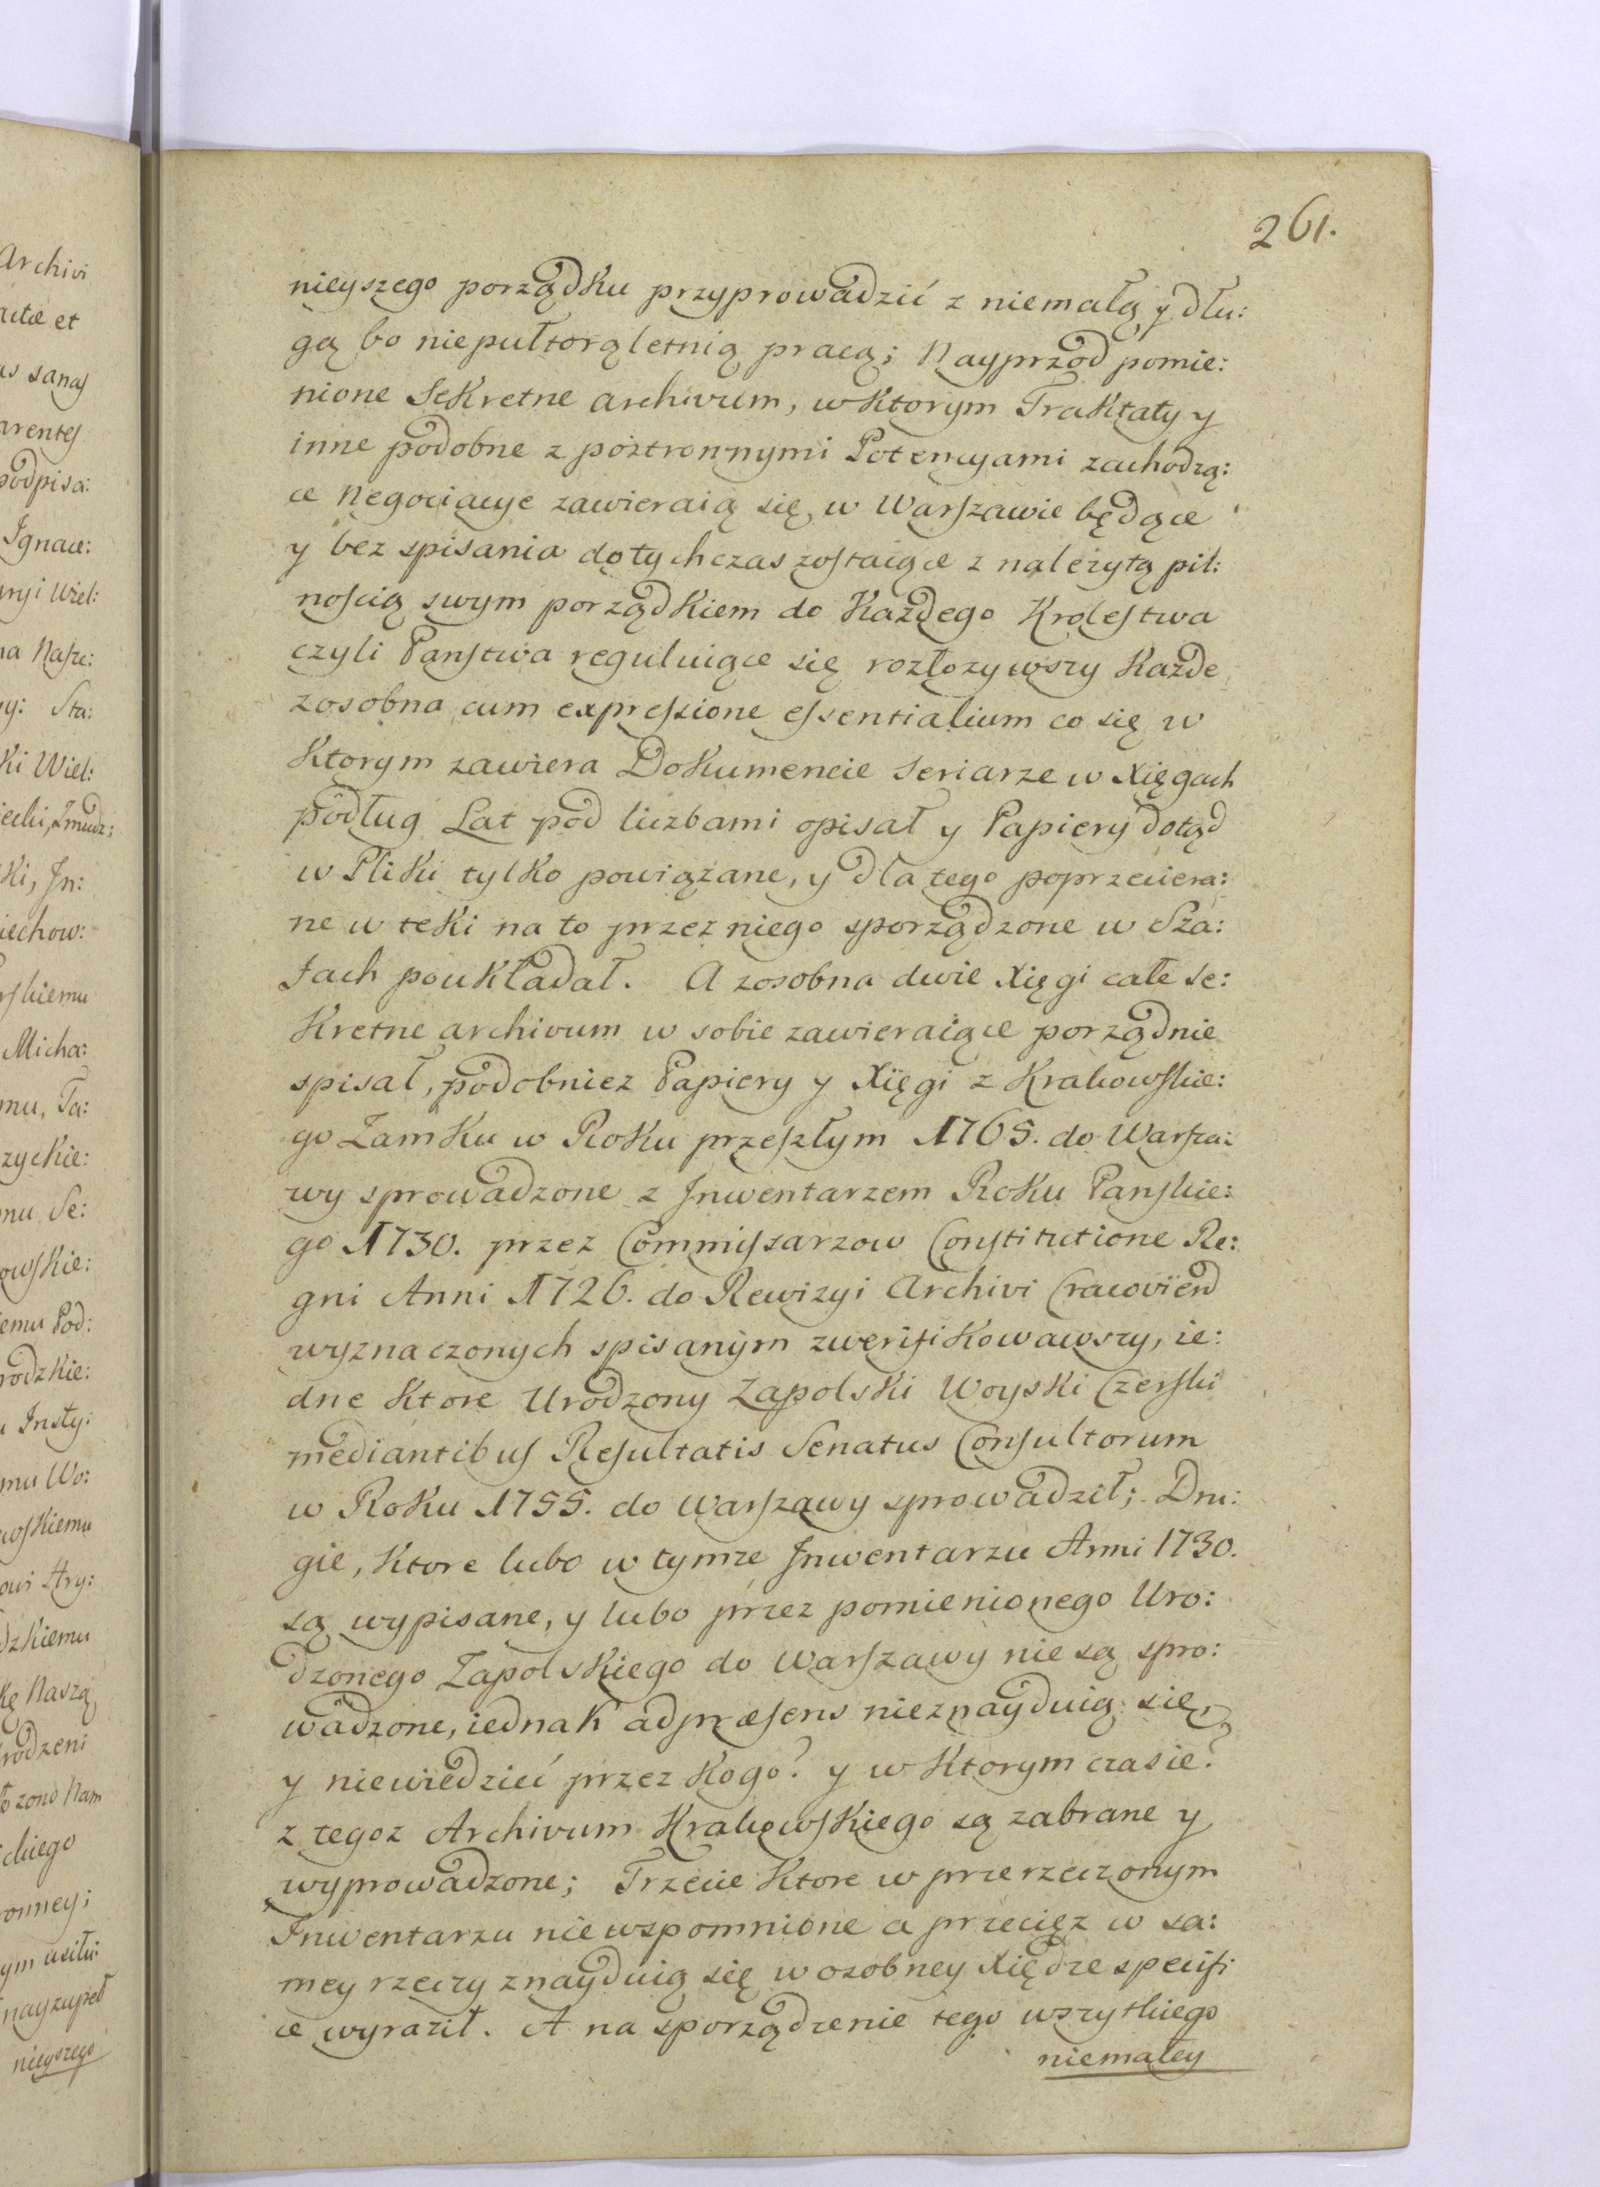 261.
nieyszego porządku przyprowadzić z niemałą y dłu:
gą bo niepułtorąletnią pracą; Nayprzod pomie:
nione Sekretne archivum, w ktorym Traktaty y
inne podobne z postronnymi Potencyami zachodzą:
ce Negociacye zawieraią się, w Warszawie będące
y bez spisania dotychczas zostaiące z należytą pil:
nością swym porządkiem do Każdego Krolestwa
czyli Państwa reguluiące się rozłozywszy Każde
zosobna cum expressione essentialium co się w
Ktorym zawiera Dokumencie seriarze w Xięgach
podług Lat pod liczbami opisał y Papiery dotąd
w Pliki tylko powiązane, y dla tego poprzeciera:
ne w teki na to przez niego sporządzone w Sza:
fach poukładał. A zosobna dwie Xięgi całe Se:
kretne archivum w sobie zawieraiące porządnie
spisał, podobniez Papiery y Xięgi z Krakowskie:
go Zamku w Roku przeszłym 1765. do Warsza:
wy sprowadzone z Inwentarzem Roku Panskie:
go 1730. przez Commissarzow Constitutione Re:
gni Anni 1726. do Rewizyi Archivi
wyznaczonych spisanym zweryfikowawszy, ie:
dne Ktore Urodzony Zapolski Woyski Czerski
mediantibus Resultatis Senatus Consultorum
w Roku 1755. do Warszawy sprowadził; Dru:
gie, Ktore lubo w tymze Inwentarzu Anni 1730.
są wypisane, y lubo przez pomienionego Uro:
dzonego Zapolskiego do Warszawy nie są spro:
wadzone, iednak adpræsens nieznayduią się,
y niewiedzieć przez Kogo? y w Ktorym czasie?
z tegoz Archivum Krakowskiego są zabrane y
wyprowadzone; Trzecie Ktore w przerzeczonym
Inwentarzu niewspomnione a przecięz w sa:
mey rzeczy znayduią się w osobney Xiędze specifi
ce wyraził. A na sporządzenie tego wszytkiego
niemałey
Archivi
et
sanas
arentes
podpisa:
Ignace:
Wiel:
Nasze:
Sta:
ki Wiel:
ki, In:
iechow:
rskiemu
Micha:
mu, Ta:
zyckie:
mu Se:
owskie:
emu Pod:
rodzkie:
Insty:
mu Wo:
wskiemu
owi Ary:
dzkiemu
kę Naszą
rodzeni
zono Nam
ckiego
onney;
ym usiłu:
nayzupeł
nieyszego